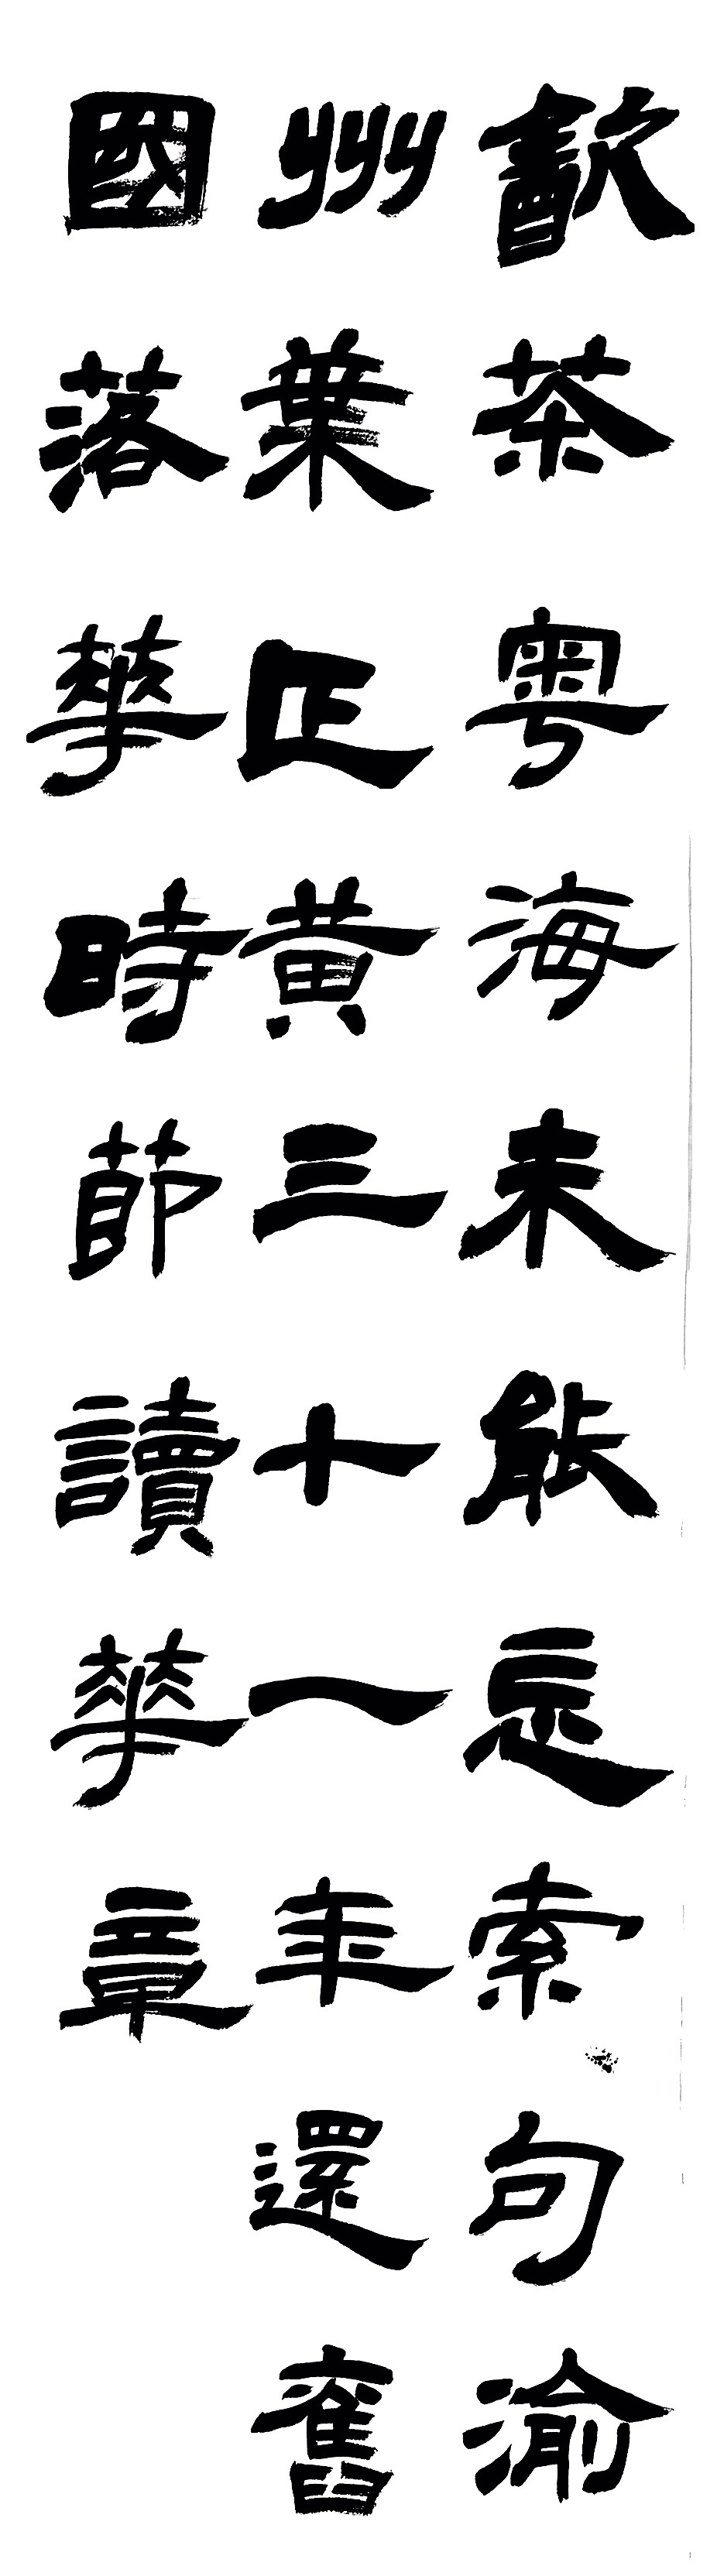 歙茶粤海未能忘索句渝
州葉正黄三十一年還舊
國落華時節讀華章